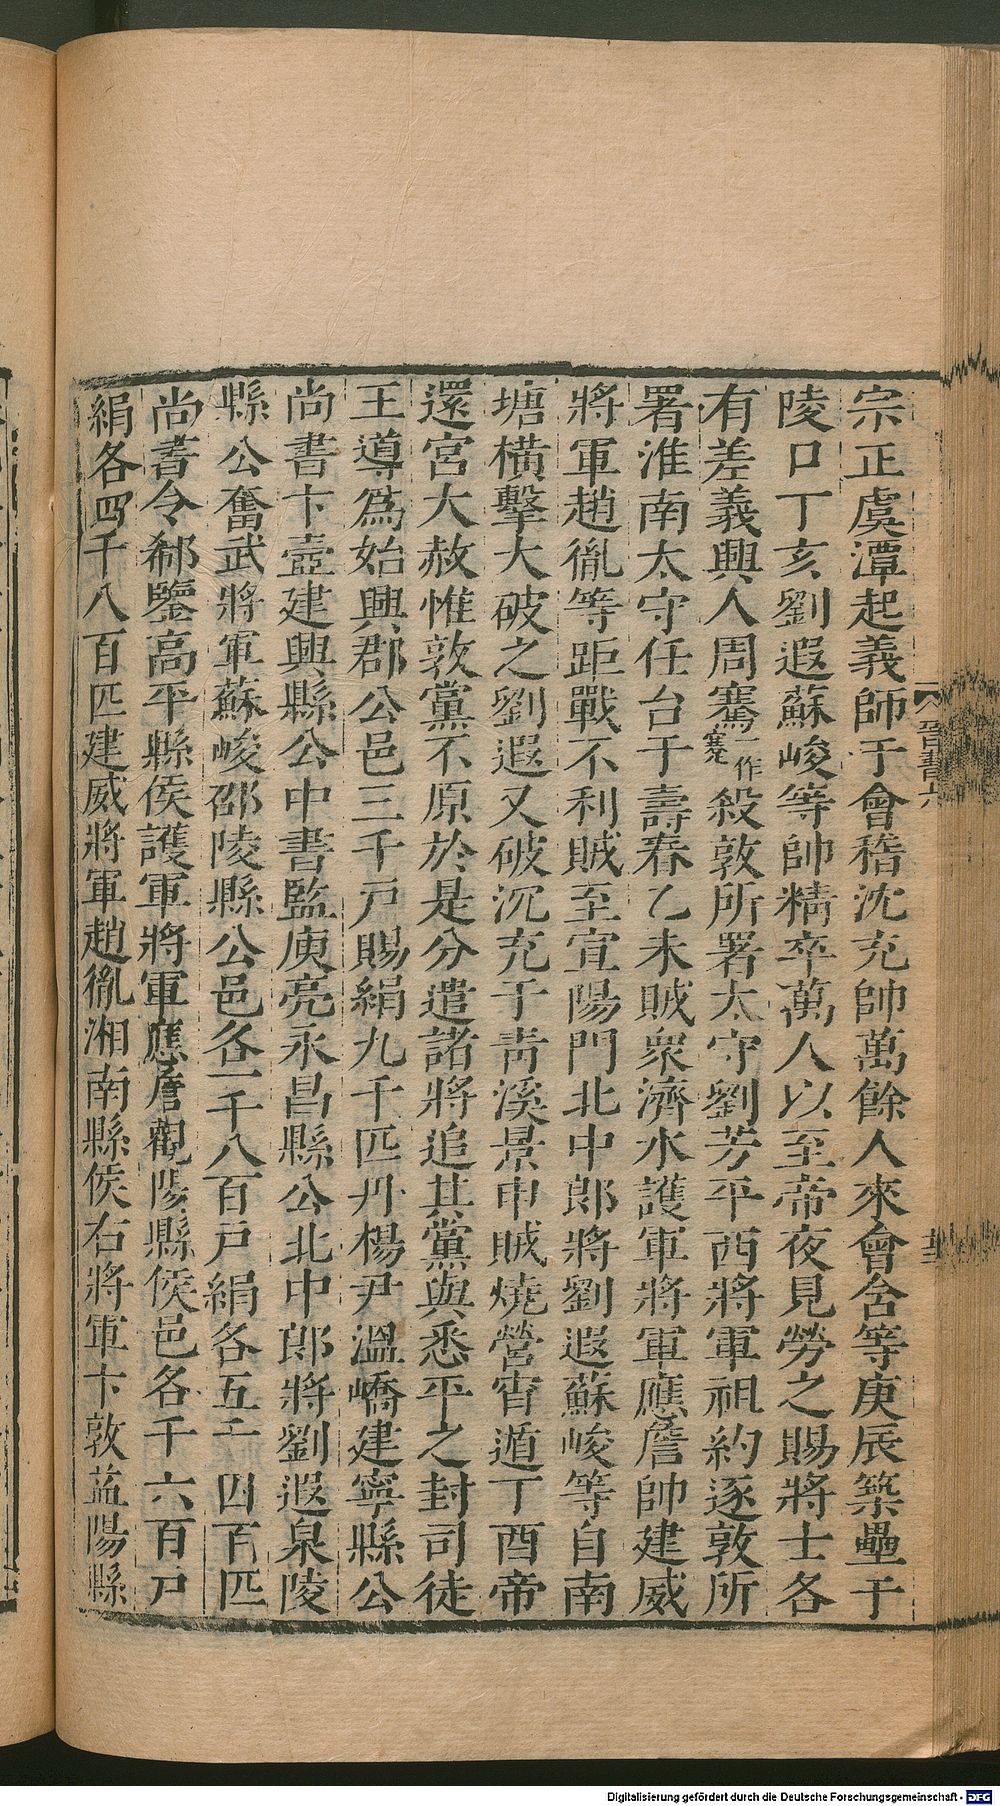 宗正虞潭起義師于會稽沈充帥萬餘人來會含等庚辰築壘于
陵口丁亥劉遐蘇峻等帥精卒萬人以至帝夜見勞之賜將士各
有差義興人周蹇一作寋殺敦所署太守劉芳平西將軍祖約逐敦所
署淮南太守任台于壽春乙未賊衆濟水護軍將軍應詹帥建威
將軍趙胤等距戰不利賊至宣陽門北中郎將劉遐蘇峻等自南
塘橫擊大破之劉遐又破沉充于靑溪景申賊燒營宵遁丁酉帝
還宮大赦惟敦黨不原於是分遣諸將追其黨與悉平之封司徒
王導爲始興郡公邑三千戸賜絹九千匹丹楊尹溫嶠建寧縣公
尚書卞壼建興縣公中書監庾亮永昌縣公北中郎將劉遐泉陵
縣公奮武將軍蘇峻邵陵縣公邑各一千八百戸絹各五千四百匹
尚書令郗鑒高平縣侯護軍將軍應詹觀陽縣侯邑各千六百戸
絹各四千八百匹建威將軍趙胤湘南縣侯右將軍卞敦益陽縣
晉書六
Digitalisierung gefördert durch die Deutsche Forschungsgemeinschaft - DFG